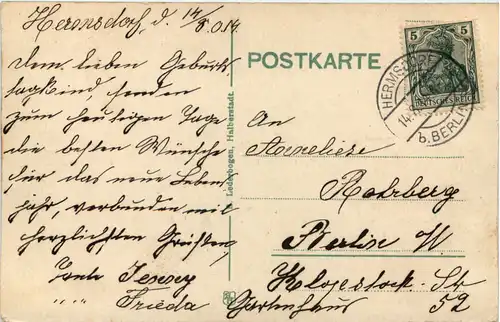 Hermsdorf, d. 14/8. 014.
dem lieben Geburts
tagskind senden
zum heutigen Tage
die besten Wünsche
für das neue Lebens
jahr, verbunden mit
herzlichsten Grüßen,
Tante Jenny
" " Frieda
Lederbogen, Halberstadt.
POSTKARTE
5 5
DEUTSCHES REICH
HERMSDORF
14.8
b. BERLIN
An
Anneliese
Rohrberg
Berlin W.
Klopstock-Str
Gartenhaus 52